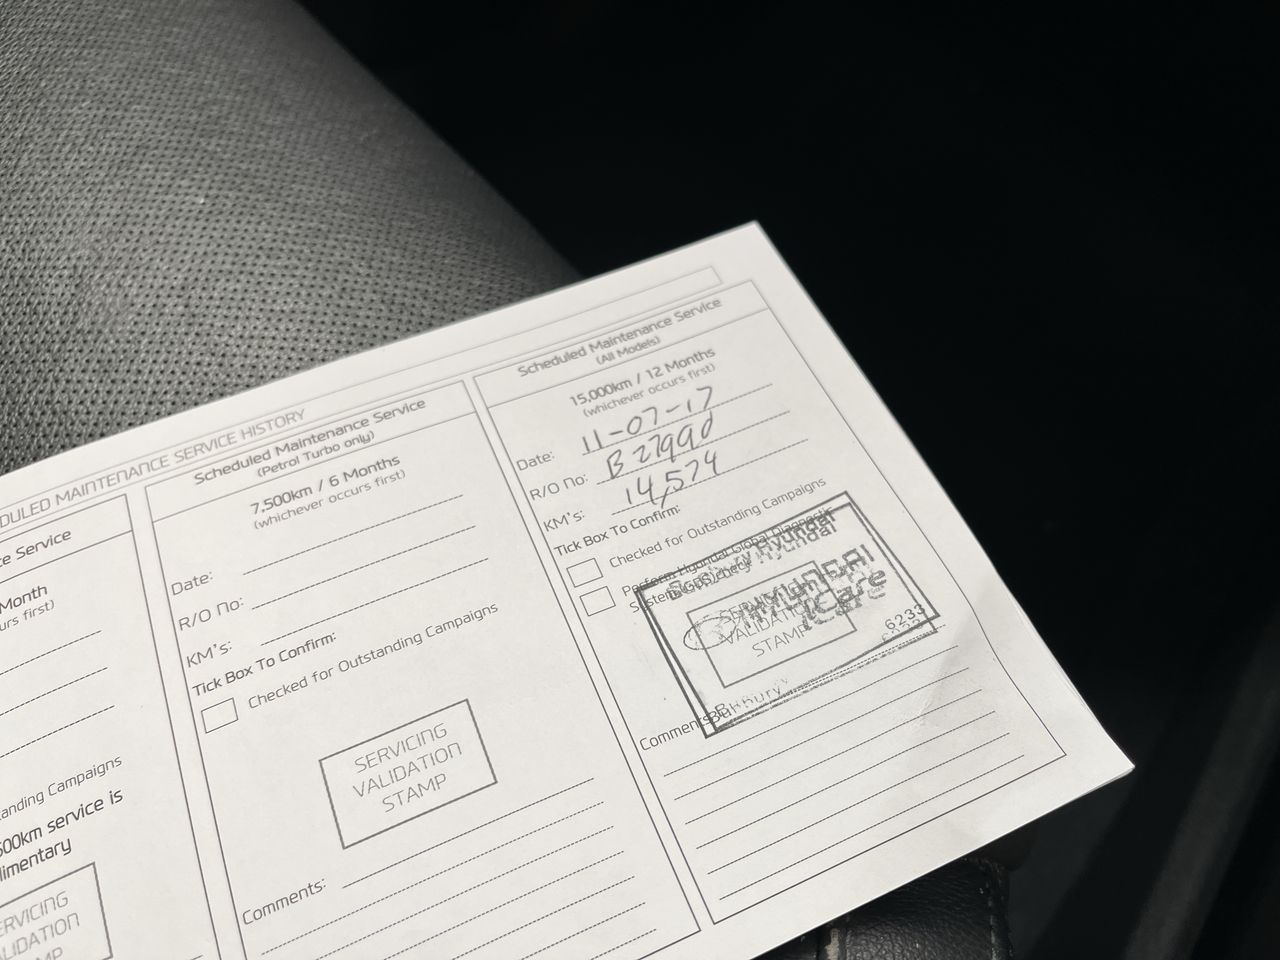 DULED MAINTENANCE SERVICE HISTORY
ce Service
Month
urs first)
anding Campaigns
500km service is
limentary
ERVICING
ALIDATION
MP
Scheduled Maintenance Service
(Petrol Turbo only)
7,500km / 6 Months
(whichever occurs first)
Date:
R/O No:
KM's:
Tick Box To Confirm:
Checked for Outstanding Campaigns
SERVICING
VALIDATION
STAMP
Comments:
Scheduled Maintenance Service
(All Models)
15,000km / 12 Months
(whichever occurs first)
Date: 11-07-17
R/O No:
KM's: 14,574
Tick Box To Confirm:
Checked for Outstanding Campaigns
Perform Hyundai Global Diagnostic
System (GDS) check
Bunbury Hyundai
HYUNDAI
iCare
SERVICING
VALIDATION
STAMP
6233
Bunbury
Comments: